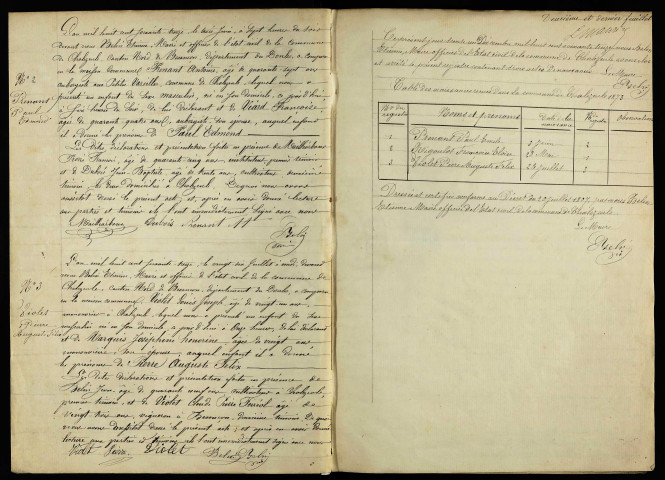 N° 2
Renant
Paul
Edmond
L'an mil huit cent soixante treize le trois Juin, à Sept heures du soir
devant nous Belin Etienne, Maire et officier de l'état civil de la commune
de Chalezeule, canton Nord de Besançon, département du Doubs, a comparu
en la maison commune Renant Antoine, âgé de quarante sept ans
aubergiste aux Petites Vaivelles, commune de Chalezeule, lequel nous a
présenté un enfant du Sexe masculin, né en son domicile, ce jour d'hui
à trois heures du soir, de lui déclarant et de Viard Francoise
âgée de quarante quatre ans, aubergiste, son épouse, auquel enfant
il a donné le prénom de Paul Edmond
Les dites déclaration et présentation faites en présence de
François, âgé de quarante cinq ans, instituteur, premier témoin
et de Dubois Jean Baptiste, âgé de trente ans, cultivateur, deuxième
témoin, les deux domiciliés à Chalezeule. Lequel nous avons
aussitôt dressé le présent acte, et, après en avoir donné lecture
aux parties et témoins ils l'ont immédiatement signé avec nous
Dubois Renant
Belin
N° 3
Violet
Pierre
Auguste Félix
L'an mil huit cent soixante treize, le vingt trois Juillet à midi, devant
nous Belin Etienne, Maire et officier de l'état civil de la commune de
Chalezeule, canton Nord de Besançon, département du Doubs, a comparu
en la maison commune, Violet Louis Joseph, âgé de vingt six ans
à Chalezeule, lequel nous a présenté un enfant du Sexe
masculin né en son domicile, ce jour d'hui à onze heures, de lui déclarant
et de Marquis Joséphine Honorine, âgée de vingt
son épouse, auquel enfant il a donné
les prénoms de Pierre Auguste Félix
Les dites déclaration et présentation faites en présence de
Belin Jean, âgé de quarante neuf ans, cultivateur à Chalezeule,
premier témoin, et de Violet Claude Pierre âgé de
vingt trois ans, vigneron à Besançon, deuxième témoin. De quoi
nous avons aussitôt dressé le présent acte, et après en avoir donné
lecture aux parties et témoins ils l'ont immédiatement signé avec nous
Violet Pierre Violet
Belin Belin
Deuxième et dernier feuillet
Clos ce jourd'hui trente un Décembre mil huit cent soixante treize, nous Belin
Etienne, Maire officier de l'Etat civil de la commune de Chalezeule
et arrêté le présent registre contenant trois actes de naissances. Le Maire
Belin
Table des naissances dans la commune de Chalezeule 1873
N° du
registre
Noms et prénoms
Date des
naissances
Registre
observations
2 Renant Paul Emile 3 Juin 2
1 23 Mai 1
3 Violet Pierre Auguste Félix 23 Juillet 2
Dressé et certifié conforme au Décret du 20 juillet 1807 par nous Belin
Etienne Maire officier de l'Etat civil de la commune de Chalezeule
Le Maire
Belin